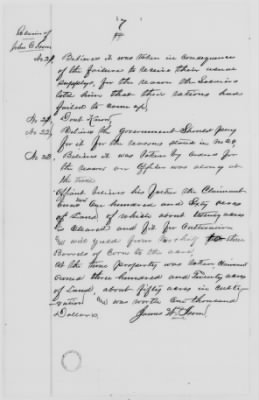 7
Claim of
John C Irwin
No 20, Believes it was taken in consequence
of the failure to receive their usual
supplys, for the reason the Soldiers
told him that their rations had
failed to come up,
No 21, Dont Know
No 22, Believes the Government Should pay
for it for the reasons stated in No 20
No 23, Believes it was taken by orders for
the reason an Officer was along at
the time
Affiant believes his Father the Claimant
owns now One hundred and Sixty acres
of Land of which about twenty acres
is Cleared and fit for Cultivation
and will yield from two & half to three
Barrels of Corn to the acre,
At the time property was taken Claimant
owned three hundred and Twenty acres
of Land, about fifty acres in culti-
vation and was worth One thousand
Dollars,
James W. Irwin